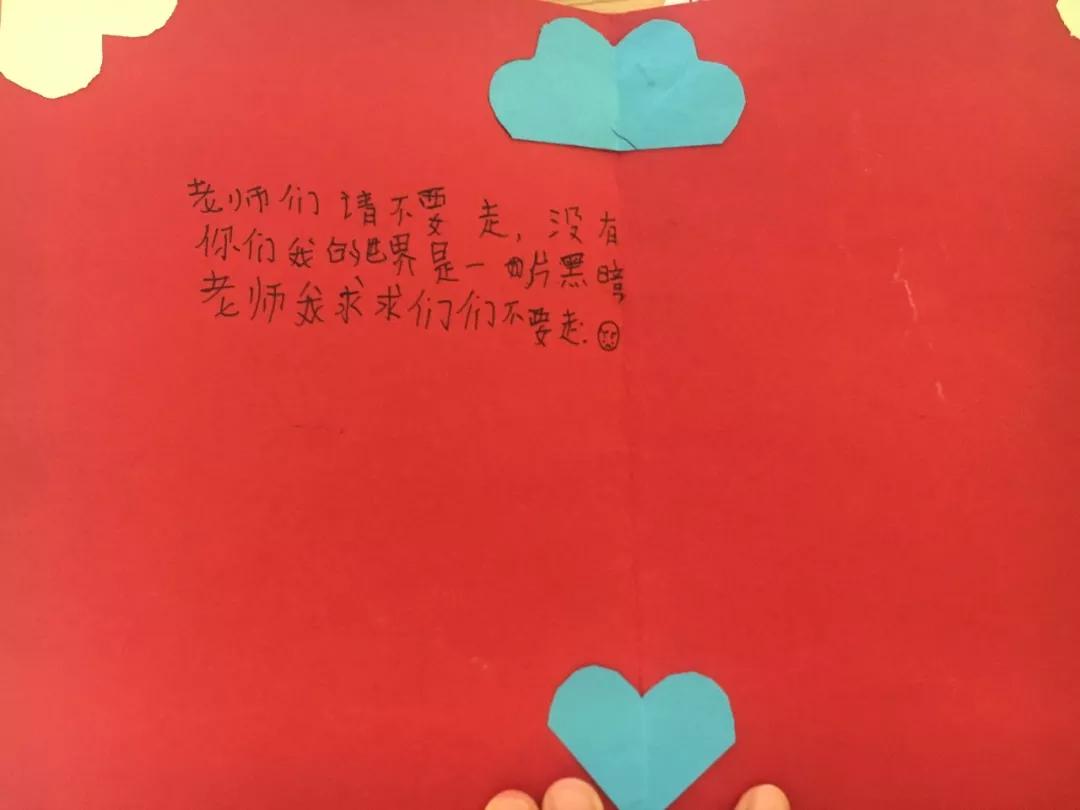 老师们请不要走，没有
你们我的世界是一片黑暗
老师我求求们们不要走.